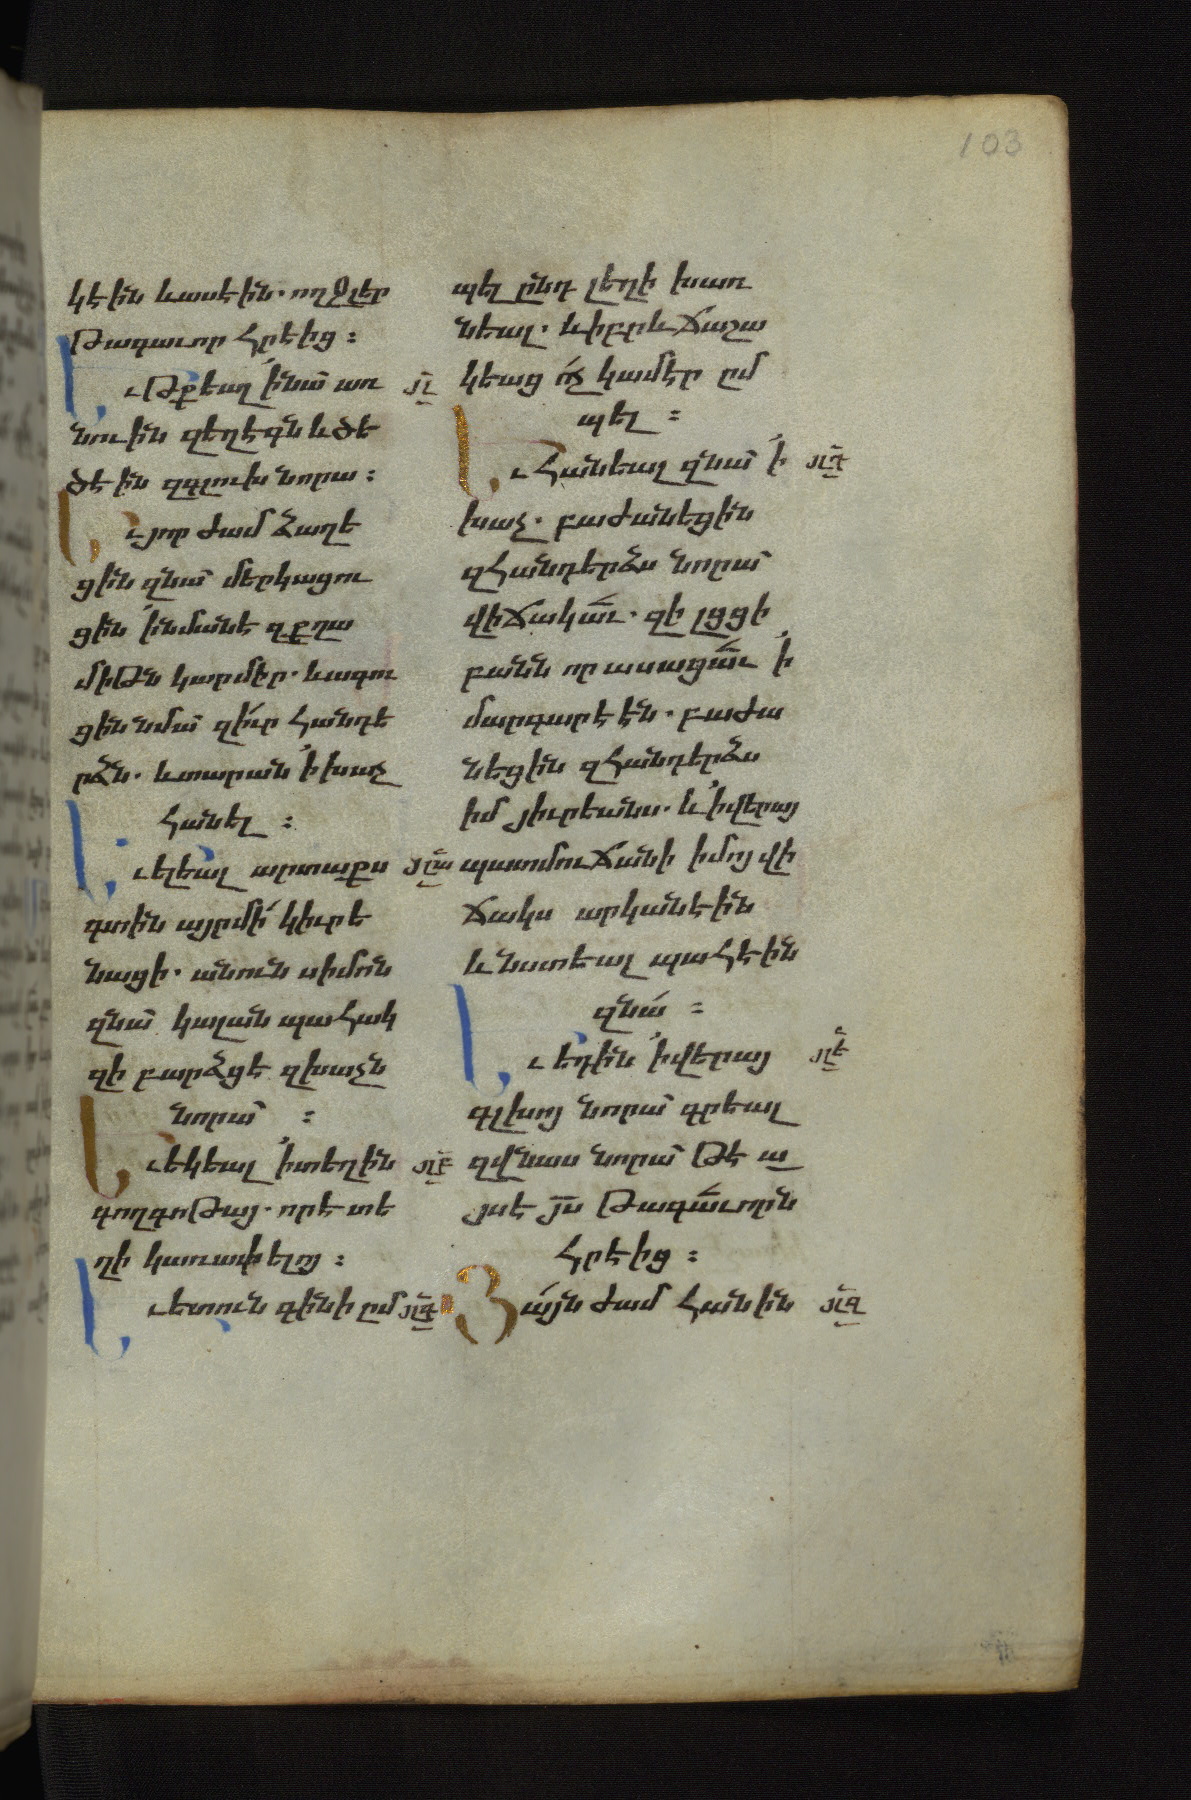 103
կէին և ասէին. ողջ լեր
Թագաւոր հրէից :
Եւ թքեալ ՛ի նա՛ առ յլ
նուին զեղէգնն և ծե
ծէին զգլուխ նորա :
Եւ յոր ժամ ձաղե
ցին զնա՛ մերկացու
ցին ՛ի նմանէ զքղա
միթն կարմիր. և ագու
ցին նմա՛ զիւր հանդե
րձն. և տարան ՛ի խաչ
հանել :
Եւ ելեալ արտաքս յլա
գտին այր մի՛ կիւրե
նացի. անուն սիմոն
զնա՛ կալան պահակ
զի բարձցէ զխաչն
նորա՛ :
Եւ եկեալ ՛ի տեղին յլբ
գողգոթայ. որ է տե
ղի կառափելոյ :
Եւ ետուն գինի ըմ յլգ
պել ընդ լեղի խառ
նեալ. և իբրև ճաշա
կեաց ո՛չ կամէր ըմ
պել :
Եւ հանեալ զնա՛ ՛ի յլդ
խաչ. բաժանեցին
զհանդերձս նորա՛
վիճակաւ. զի լցցի
բանն որ ասացաւ ՛ի
մարգարէէն. բաժա
նեցին զհանդերձս
իմ յիւրեանս. և ՛ի վերայ
պատմուճանի իմոյ վի
ճակս արկանէին
և նստեալ պահէին
զնա՛ :
Եւ եդին ՛ի վերայ յլե
գլխոյ նորա՛ գրեալ
զվնաս նորա՛ թե ա
յս է յս թագաւորն
հրէից :
Յայն ժամ հանին յլզ